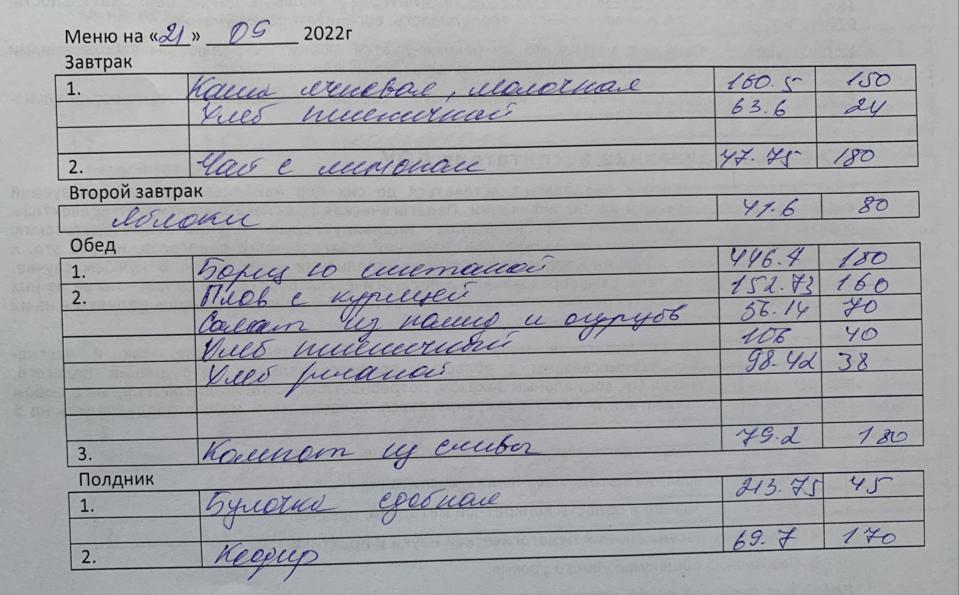 Меню на «21» 09 2022г
Завтрак
1. Каша ячневая, молочная 160.5 150
Хлеб пшеничной 63.6 24
2. Чай с лимоном 47.75 180
Второй завтрак
Яблоки 41.6 80
Обед
1. Борщ со сметаной 446.4 180
2. Плов с курицей 152.73 160
Салат из помид и огурцов 56.14 70
Хлеб пшеничный 106 40
Хлеб ржаной 98.42 38
3. Компот из сливы 79.2 180
Полдник
1. Булочка сдобная 213.75 45
2. Кефир 69.7 170